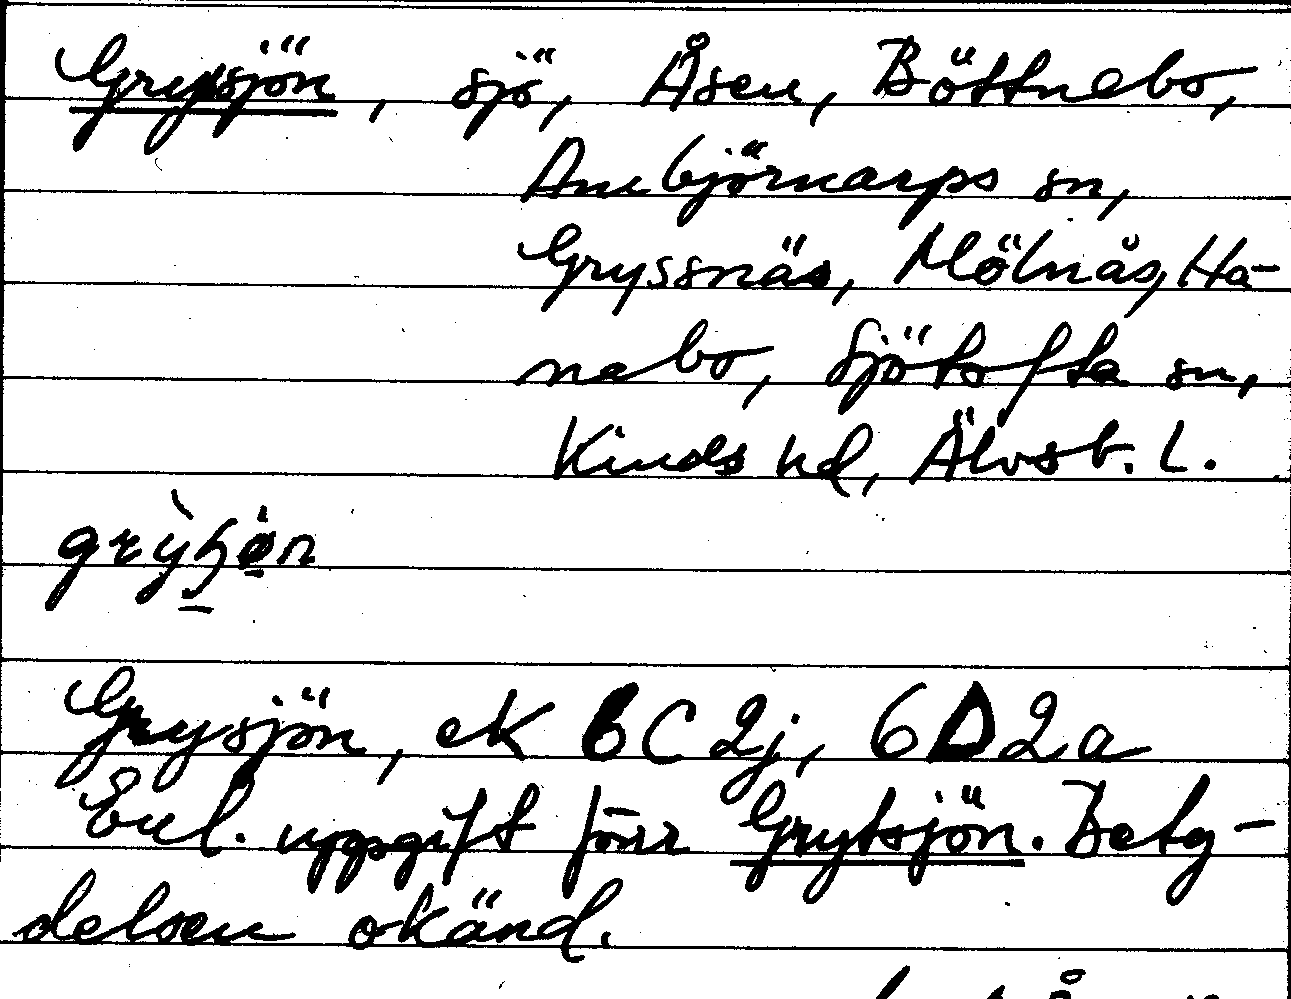 Grysjön, sjö, Åsen, Böttnebo,
Ambjörnarps sn,
Gryssnäs, Mölnås, Ha-
nabo, Sjötofta sn,
Kinds hd, Älvsb. L.
Grysjön, ek 6C 2j, 6D2a
Enl. uppgift förr Grytsjön. Bety-
delsen okänd.